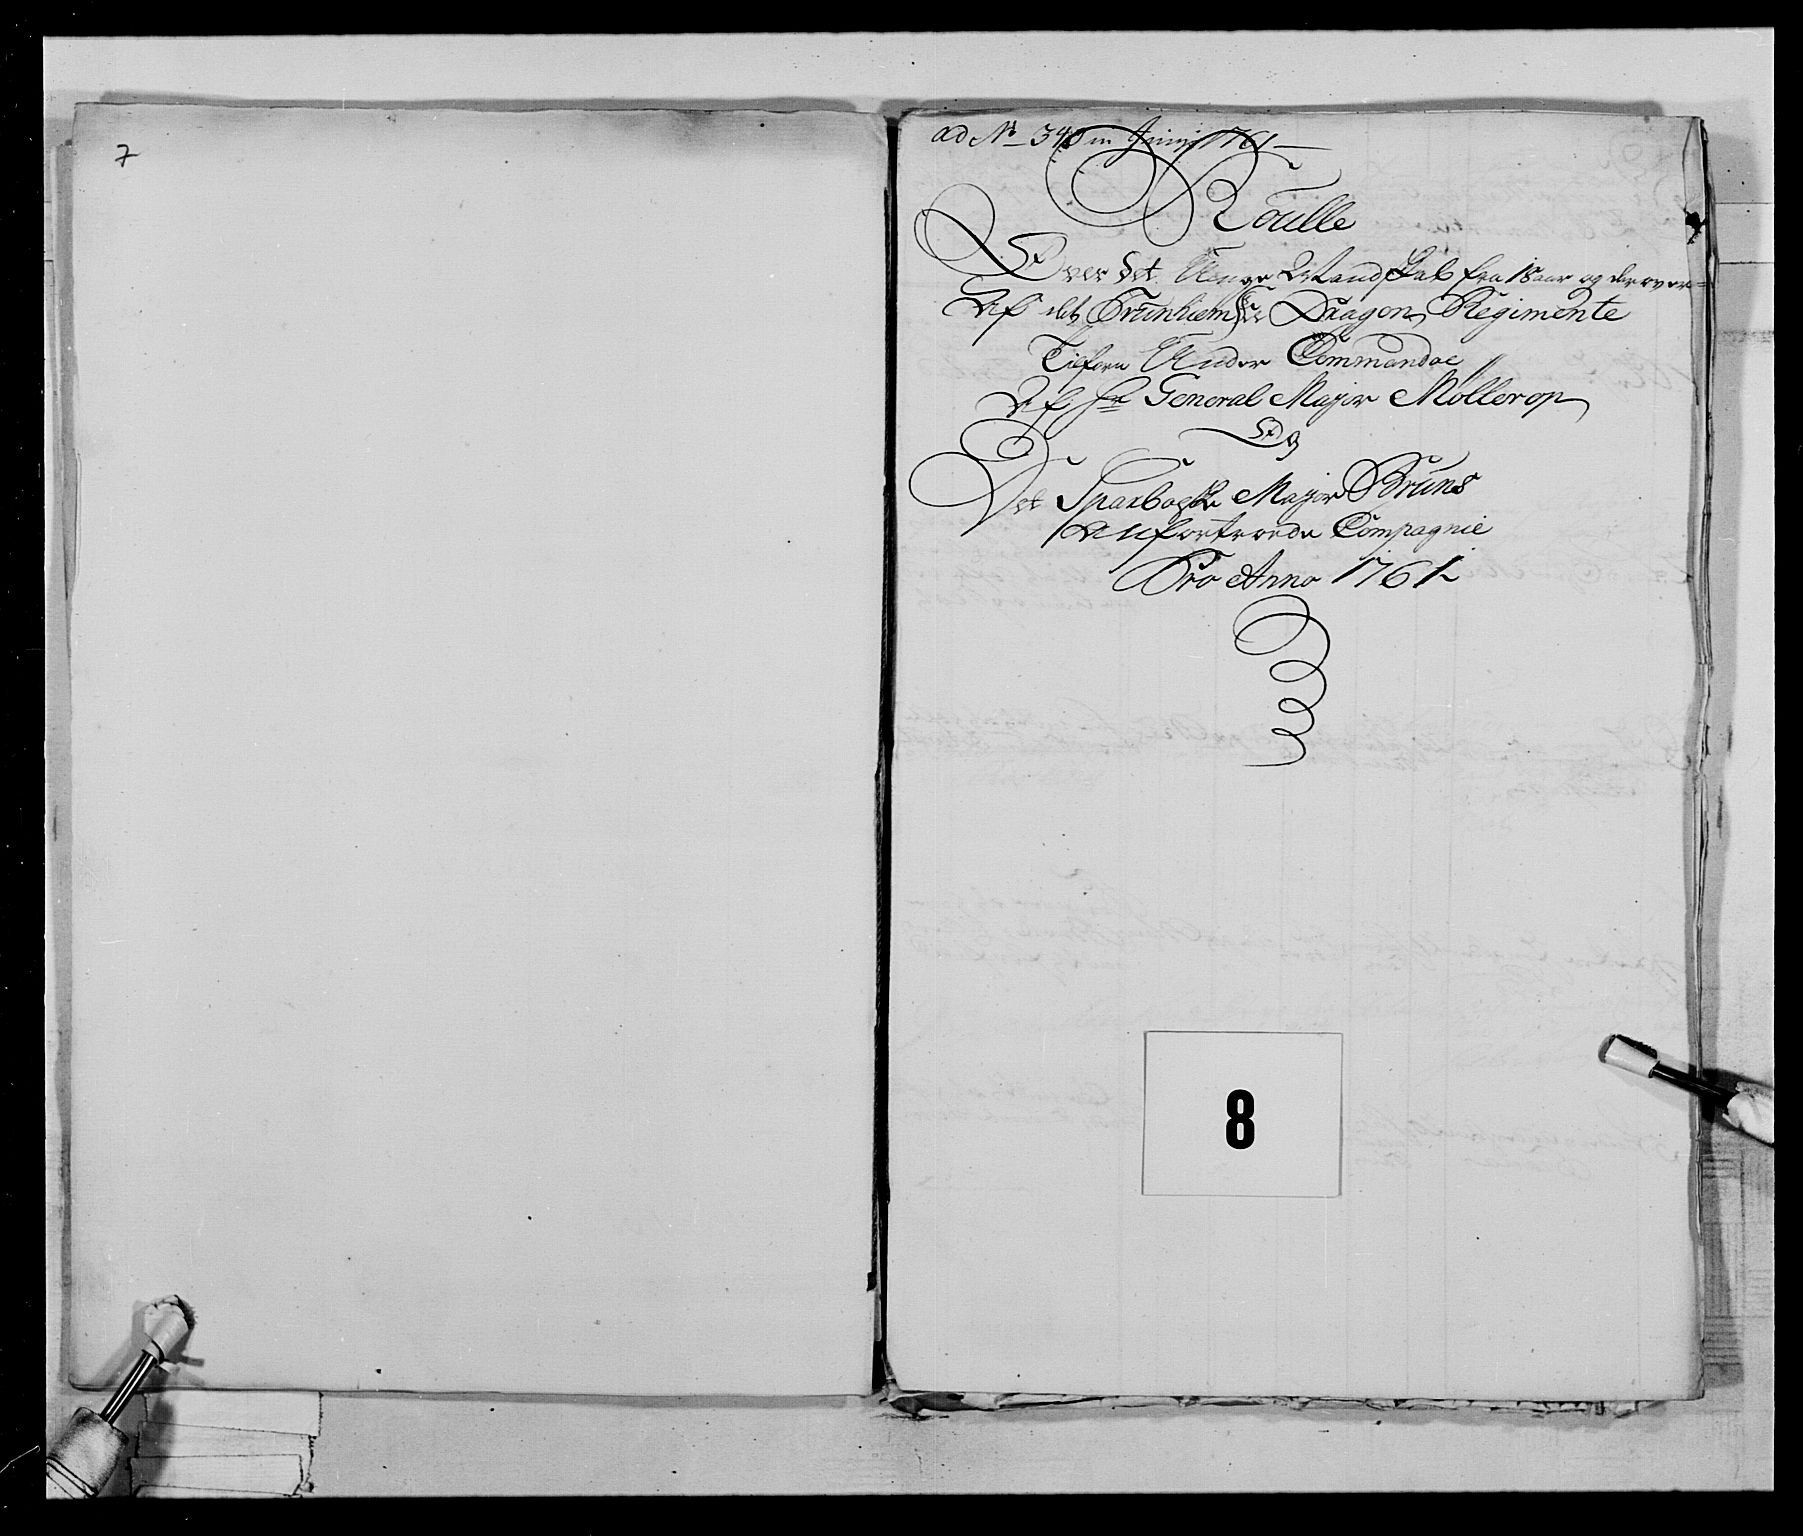 7
ad No 340 in Junij 1761
Roulle
Over det Unge Mandskab fra 18 aar og derover
Af det Trunhiemske Dragon Regimente
Tilforn Under Commandoe
Af Hr General Major Möllerop
Og
Det Sparboeske Major Bruns
Anfortroede Compagnie
Pro Anno 1761
8